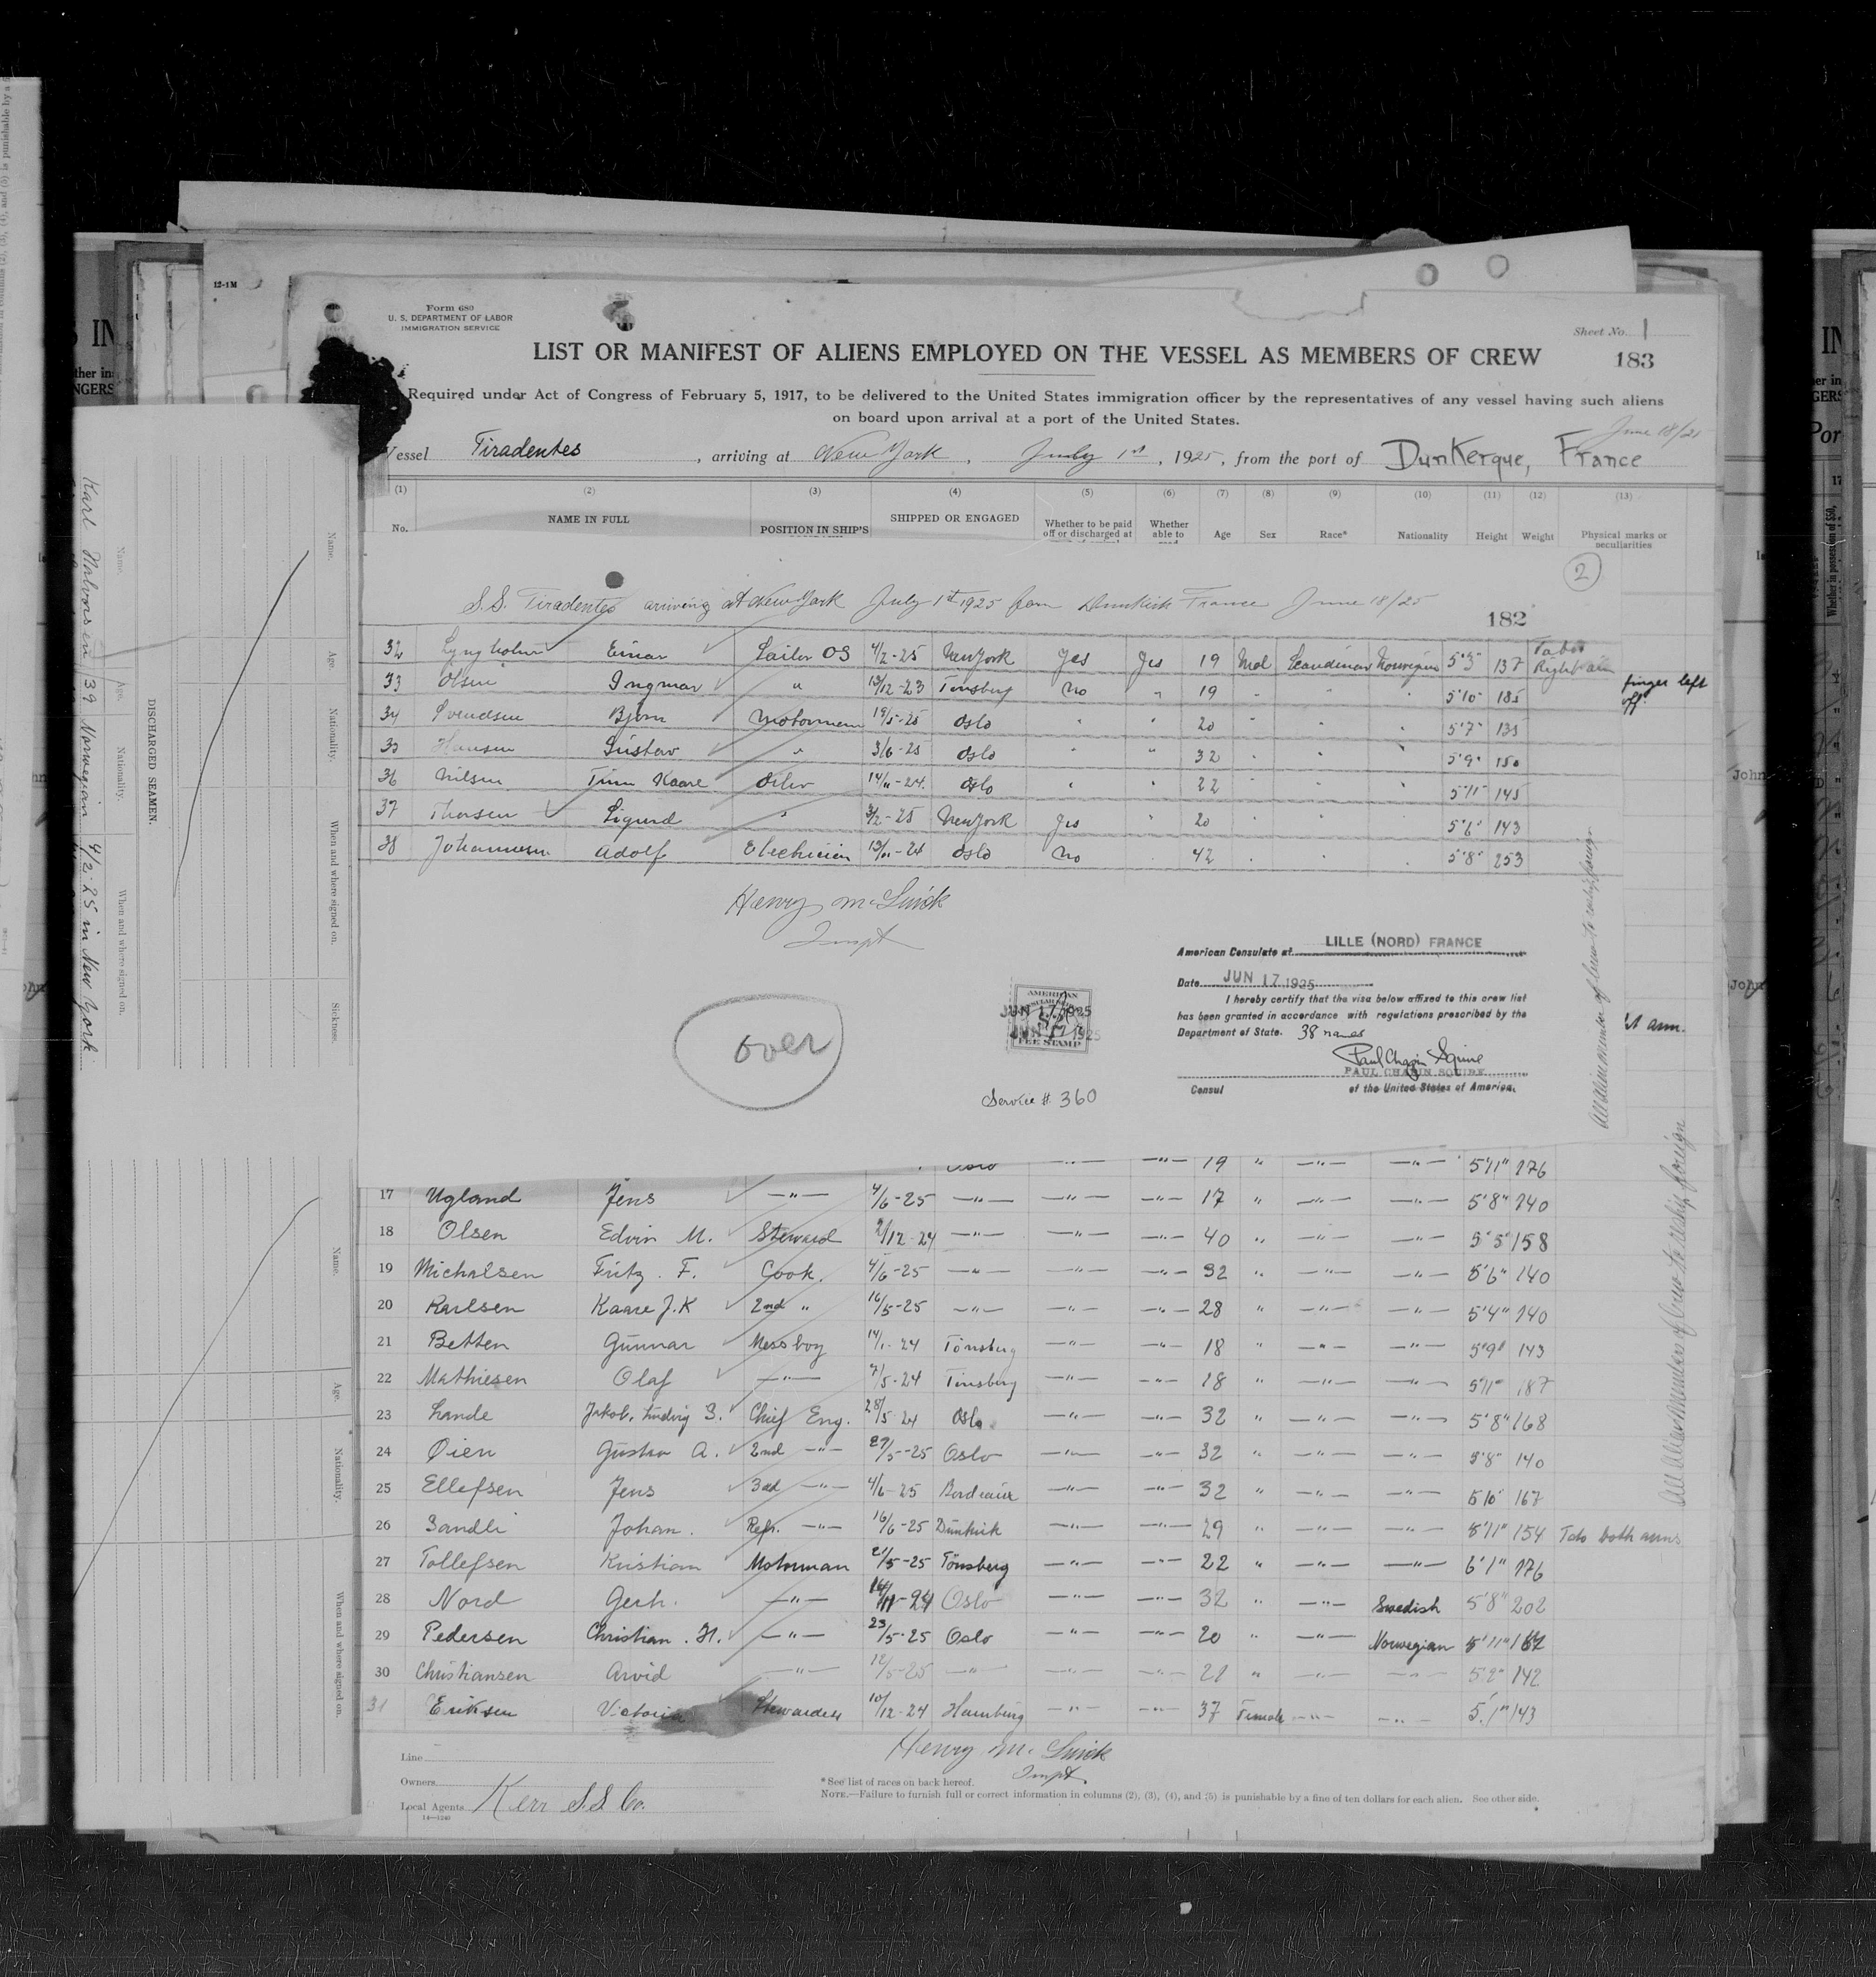 12-1M
Form 680
U. S. DEPARTMENT OF LABOR
IMMIGRATION SERVICE
Sheet No. 1
LIST OR MANIFEST OF ALIENS EMPLOYED ON THE VESSEL AS MEMBERS OF CREW
183
Required under Act of Congress of February 5, 1917, to be delivered to the United States immigration officer by the representatives of any vessel having such aliens
on board upon arrival at a port of the United States.
June 18/25
Vessel Tiradentes, arriving at New York, July 1st, 1925, from the port of DunKerque, France
(1) (2) (3) (4) (5) (6) (7) (8) (9) (10) (11) (12) (13)
No. NAME IN FULL POSITION IN SHIP'S SHIPPED OR ENGAGED Whether to be paid off or discharged at Whether able to Age Sex Race* Nationality Height Weight Physical marks or peculiarities
2
S.S. Tiradentes arriving at New York July 1st 1925 from Dunkirk France June 18/25
182
32 Lyngholm Einar Sailor OS 4/2-25 New York Yes Yes 19 Mal Scandinav Norwegian 5'5" 137 Right arm
33 Olsen Ingmar " 13/12-23 Tönsberg No " 19 " " " 5'10" 185
finger left off.
34 Svendsen Björn Motorman 19/5-25 Oslo " " 20 " " " 5'7" 135
35 Hansen Gustav " 3/6-25 Oslo " " 32 " " " 5'9" 150
36 Nilsen Finn Kaare Oiler 14/11-24 Oslo " " 22 " " " 5'11" 145
37 Thorsen Sigurd " 3/2-25 New York Yes " 20 " " " 5'6" 143
38 Johannesen Adolf Electricien 13/11-24 Oslo No " 42 " " " 5'8" 253
Henry Mc
Inspt
over
AMERICAN
FEE STAMP
JUN 17 1925
Service #. 360
American Consulate at LILLE (NORD) FRANCE
Date JUN 17 1925
I hereby certify that the visa below affixed to this crew list
has been granted in accordance with regulations prescribed by the
Department of State. 38 names
Paul Chapin Squire
PAUL CHAPIN SQUIRE
Consul of the United States of America.
Oslo —"— —"— 19 " —"— —"— 5'11" 176
17 Ugland Jens —"— 4/6-25 —"— —"— —"— 17 " —"— —"— 5'8" 140
18 Olsen Edvin M. Steward 2/12-24 —"— —"— —"— 40 " —"— —"— 5'5" 158
19 Michalsen Fritz. F. Cook. 4/6-25 —"— —"— —"— 32 " —"— —"— 5'6" 140
20 Karlsen Kaare J.K 2nd " 16/5-25 —"— —"— —"— 28 " —"— —"— 5'4" 140
21 Betten Gunnar Messboy 14/1-24 Tönsberg —"— —"— 18 " —"— —"— 5'9" 143
22 Mathiesen Olaf —"— 7/5-24 Tönsberg —"— —"— 18 " —"— —"— 5'11" 187
23 Lande Jakob, Ludvig S. Chief Eng. 28/5 24 Oslo —"— —"— 32 " —"— —"— 5'8" 168
24 Öien Gustav A. 2nd —"— 29/5-25 Oslo —"— —"— 32 " —"— —"— 5'8" 140
25 Ellefsen Jens 3rd —"— 4/6-25 Bordeaux —"— —"— 32 " —"— —"— 5'10" 167
26 Sandli Johan. Refr. —"— 16/6-25 Dunkirk —"— —"— 29 " —"— —"— 5'11" 154 Tato both arms
27 Tollefsen Kristian Motorman 2/5-25 Tönsberg —"— —"— 22 " —"— —"— 6'1" 176
28 Nord Gerh. —"— 11-24 Oslo —"— —"— 32 " —"— Swedish 5'8" 202
29 Pedersen Christian. H. —"— 23/5-25 Oslo —"— —"— 20 " —"— Norwegian 5'11"
30 Christiansen Arvid —"— 12/5-25 —"— —"— —"— 21 " —"— —"— 5'2" 142
31 Eriksen Victoria Stewardess 10/12-24 Hamburg —"— —"— 37 Female —"— —"— 5'1" 143
Henry Mc
Inspt.
Line
Owners
Local Agents Kerr S.S. Co.
14—1240
*See list of races on back hereof.
NOTE.—Failure to furnish full or correct information in columns (2), (3), (4), and (5) is punishable by a fine of ten dollars for each alien. See other side.
DISCHARGED SEAMEN.
Name. Age. Nationality. When and where signed on.
Karl Halvorsen 39 Norwegian 4/2-25 in New York
Name. Age. Nationality. When and where signed on. Sickness.
Name. Age. Nationality. When and where signed on.
All alien members of crew to reship foreign